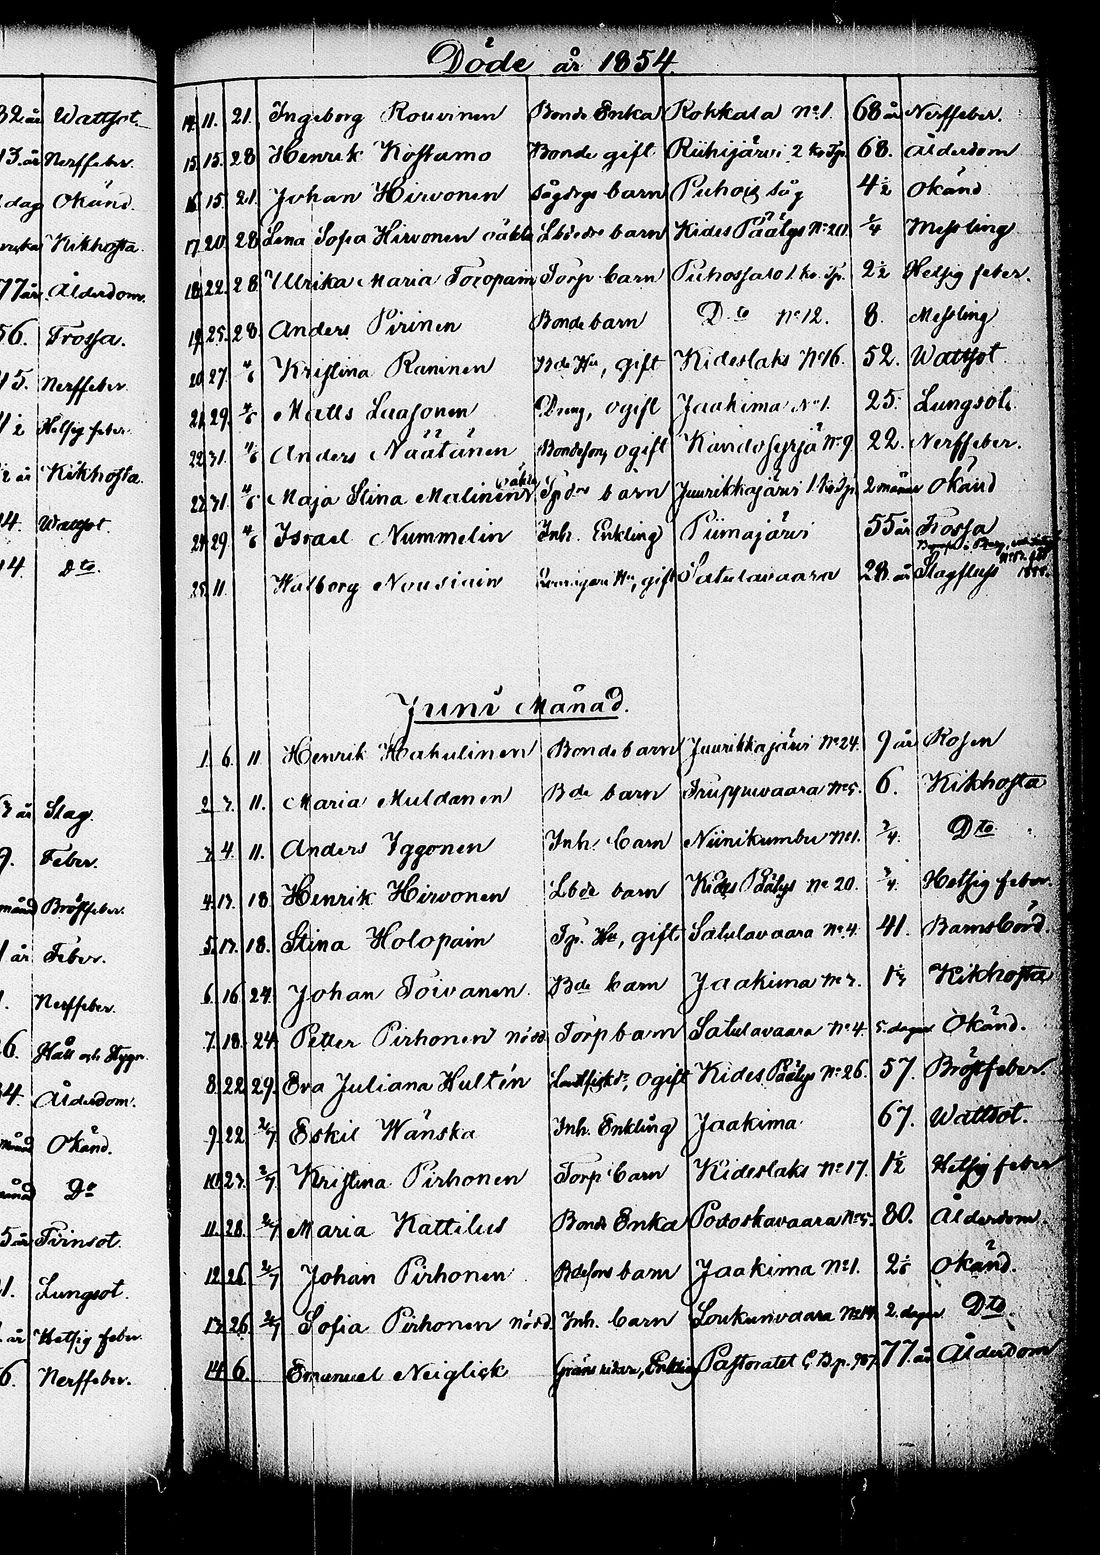 Döde år 1854.
32 år Wattsot
13. år Nerffeber.
dag Okänd.
Kikhosta.
77 år Ålderdom.
56. Frossa.
45. Nerffeber.
1/2 Hetsig feber.
1/2 år Kikhosta.
4. Wattsot.
14. Dto.
år Slag.
9. Feber.
månd Bröstfeber.
1 år Feber.
Nerffeber.
26. Håll och Stygn.
34. Ålderdom.
månd Okänd.
månd Do
5 år Tvinsot.
1. Lungsot.
år Hetsig feber.
6. Nerffeber.
14. 11. 21. Ingeborg Rouvinen Bonde Enka Rokkala No 1. 68 år Nerffeber.
15. 15. 28 Henrik Kostamo Bonde gift Riihijärvi 2 68. Ålderdom
16. 15. 21. Johan Hirvonen barn Puhois såg 4 1/2 Okänd
17. 20. 28 Lena Sofia Hirvonen oäkta barn Kides Päälys No 20. 1/4 Messling
18. 22. 28 Ulrika Maria Toropain Torp barn Puhossalo 1 2 1/2 Hetsig feber.
19. 25. 28. Anders Pirinen Bonde barn Dto No 12. 8. Messling
20. 27. 4/6 Kristina Raninen Bde Hu, gift Kideslaks No 16. 52. Wattsot
21. 29. 4/6 Matts Laasonen Dreng, ogift Jaakima No 1. 25. Lungsot.
22. 31. 4/6 Anders Näätänen Bondeson, ogift No 9. 22. Nerffeber.
23. 31. 4/6 Maja Stina Malinen oäkta barn Juurikkajärvi 1. 2 månar Okänd
24. 29 4/6 Israel Nummelin Inh. Enkling Piimajärvi 55 år Frossa
25. 11. Walborg Nousiain Hu, gift Satulavaara 28 år Slagfluss
Juni Månad.
1. 6. 11. Henrik Kakulinen Bonde barn Juurikkajärvi No 24. 9 år Rosen
2. 7. 11. Maria Muldanen Bde barn Truppuvaara No 5. 6. Kikhosta
3. 4. 11. Anders Iggonen Inh. barn Niinikumbu No 1. 3/4. Dto
4. 13. 18 Henrik Hirvonen Lbde barn Kides Päälys No 20. 3/4. Hetsig feber.
5. 13. 18. Stina Holopain Tp. Hu, gift Satulavaara No 4. 41. Barnsbörd.
6. 16 24. Johan Toivanen Bde barn Jaakima No 3. 1 1/3 Kikhosta
7. 18. 24 Petter Pirhonen nödd Torp barn Satulavaara No 4. 5. dagar Okänd.
8. 22. 29. Eva Juliana Hultén ogift Kides Päälys No 26. 57. Bröstfeber.
9. 22 2/7 Eskil Wänska Inh. Enkling Jaakima 67. Wattsot.
10. 23. 2/7 Kristina Pirhonen Torp barn Kideslaks No 17. 1 1/2 Hetsig feber
11. 28. 2/7 Maria Kattilus Bonde Enka Potoskavaara No 5. 80. Ålderdom.
12. 26. 2/7 Johan Pirhonen Bdesons barn Jaakima No 1. Okänd.
13. 26. 2/7 Sofia Pirhonen nödd. Inh. barn Loukunvaara No 14. 2. dagar Dto
14. 6. Emanuel Neiglick Enkling Pastoratet C. B. p. 907. 77 år Ålderdom